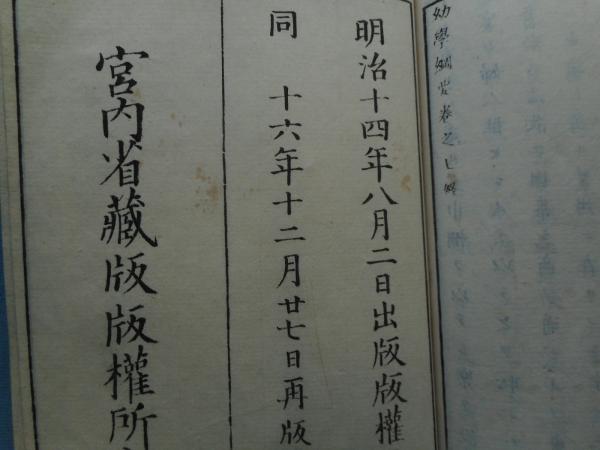 幼學綱要卷之七終
明治十四年八月二日出版版權
同 十六年十二月廿七日再版
宮內省藏版版權所